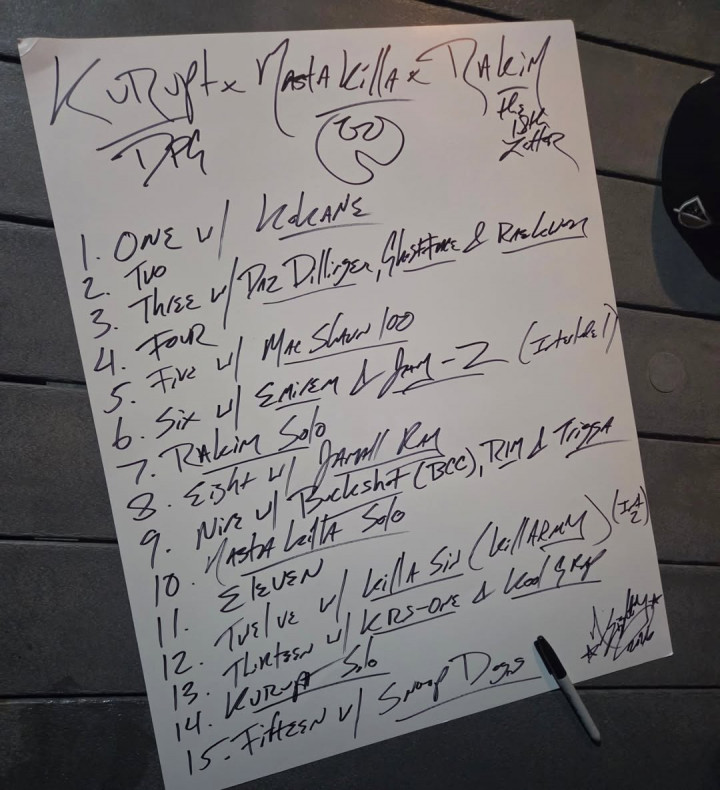 KURupt x Masta Killa x RAKim
DPG
the
18th
Letter
1. ONE w/ KoKANE
2. Two
3. Three w/ DAZ Dillinger, Ghostface & RAEKWON
4. FOUR
5. Five w/ Mac Shawn 100
6. Six w/ EminEm & JAY-Z (Interlude 1)
7. RAKim Solo
8. Eight w/ Jamall Ray
9. Nine w/ Buckshot (BCC), RIM & Trigga
10. MASTA Killa Solo
11. ELEVEN
12. Twelve w/ Killa Sin (KillARMY) (Int 2)
13. Thirteen w/ KRS-ONE & Kool G RAP
14. KURupt Solo
15. Fifteen w/ Snoop Dogg